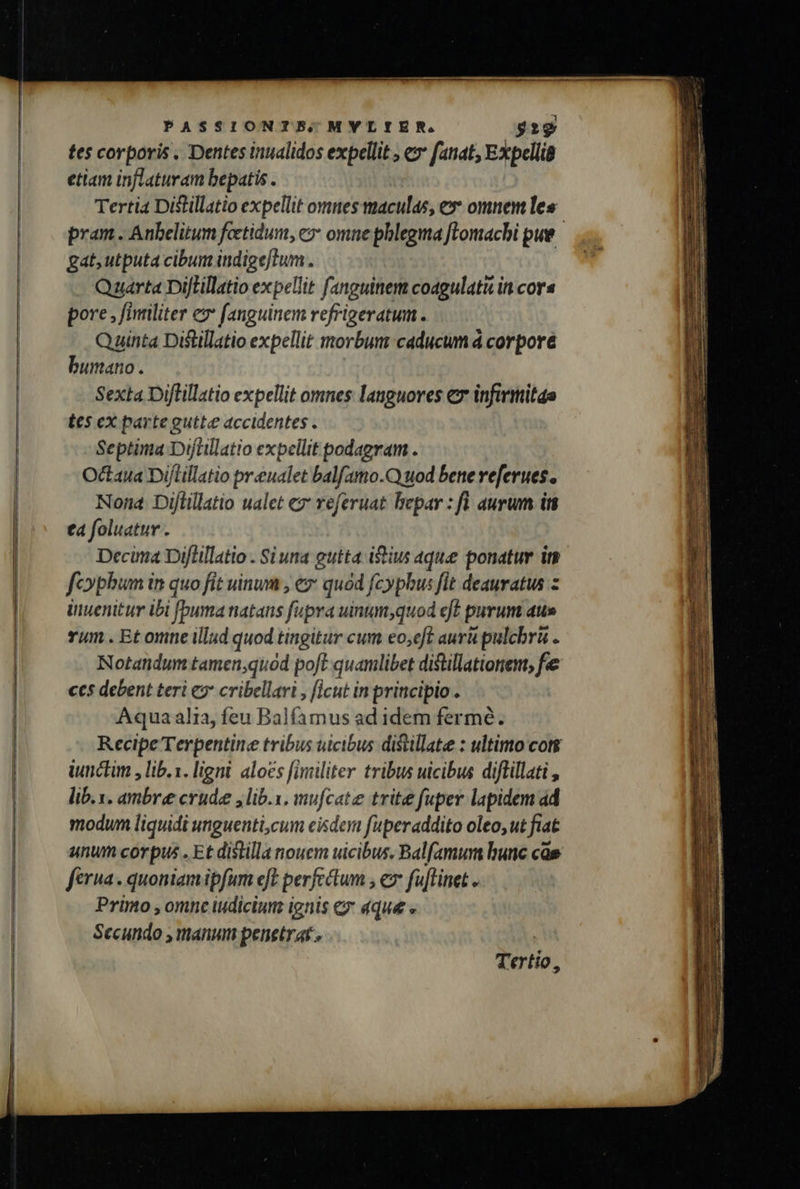 PASSIONIB. MVLIER. 529
tes corporis. Dentes inualidos expellit, &amp; ſanat, Expellit
etiam inflaturam hepatis.
Tertia Diſtillatio expellit omnes maculas, &amp; omnem le=
pram. Anhelitum fœtidum, &amp; omne phlegma ſtomachi pur=
gat, utputa cibum indigeſtum.
Quarta Diſtillatio expellit ſanguinem coagulatũ in cor=
pore, ſimiliter &amp; ſanguinem refrigeratum.
Quinta Diſtillatio expellit morbum caducum à corpore
humano.
Sexta Diſtillatio expellit omnes languores &amp; infirmita=
tes ex parte guttæ accidentes.
Septima Diſtillatio expellit podagram.
Octaua Diſtillatio præualet balſamo. Quod bene reſerues.
Nona Diſtillatio ualet &amp; reſeruat hepar: ſi aurum in
ea ſoluatur.
Decima Diſtillatio. Si una gutta iſtius aquæ ponatur in
ſcyphum in quo ſit uinum, &amp; quòd ſcyphus ſit deauratus:
inuenitur ibi ſpuma natans ſupra uinum, quod eſt purum au=
rum. Et omne illud quod tingitur cum eo, eſt aurũ pulchrũ.
Notandum tamen, quòd poſt quamlibet diſtillationem, fæ
ces debent teri &amp; cribellari, ſicut in principio.
Aqua alia, ſeu Balſamus ad idem fermè.
Recipe Terpentinæ tribus uicibus diſtillatæ: ultimo con
iunctim, lib.1. ligni aloës ſimiliter tribus uicibus diſtillati,
lib.1. ambræ crudæ, lib.1. muſcatæ tritæ ſuper lapidem ad
modum liquidi unguenti, cum eiſdem ſuperaddito oleo, ut fiat
unum corpus. Et diſtilla nouem uicibus. Balſamum hunc cõ=
ſerua. quoniam ipſum eſt perfectum, &amp; ſuſtinet.
Primo, omne iudicium ignis &amp; aquæ.
Secundo, manum penetrat.
Tertio,